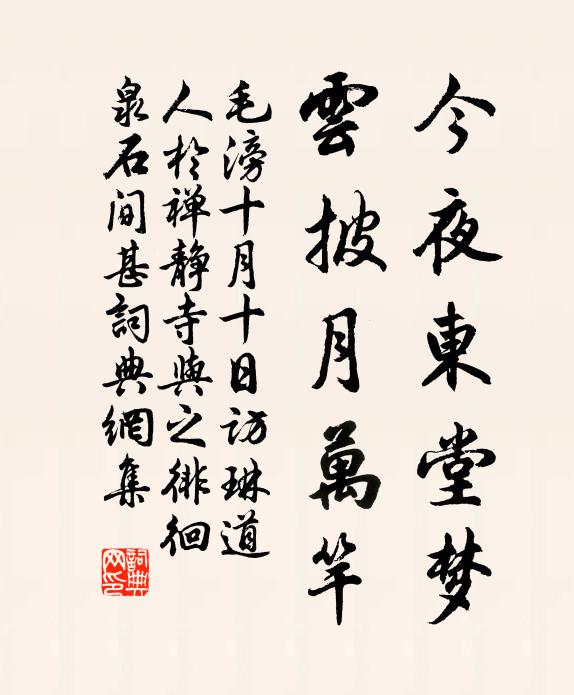 今夜東堂梦
雲披月萬竿
毛滂十月十日访琳道
人於禅静寺與之徘徊
泉石间甚詞典網集
詞典
网印